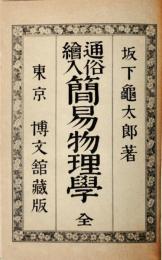 坂下龜太郎著
通俗繪入簡易物理學 全
東京 博文館藏版